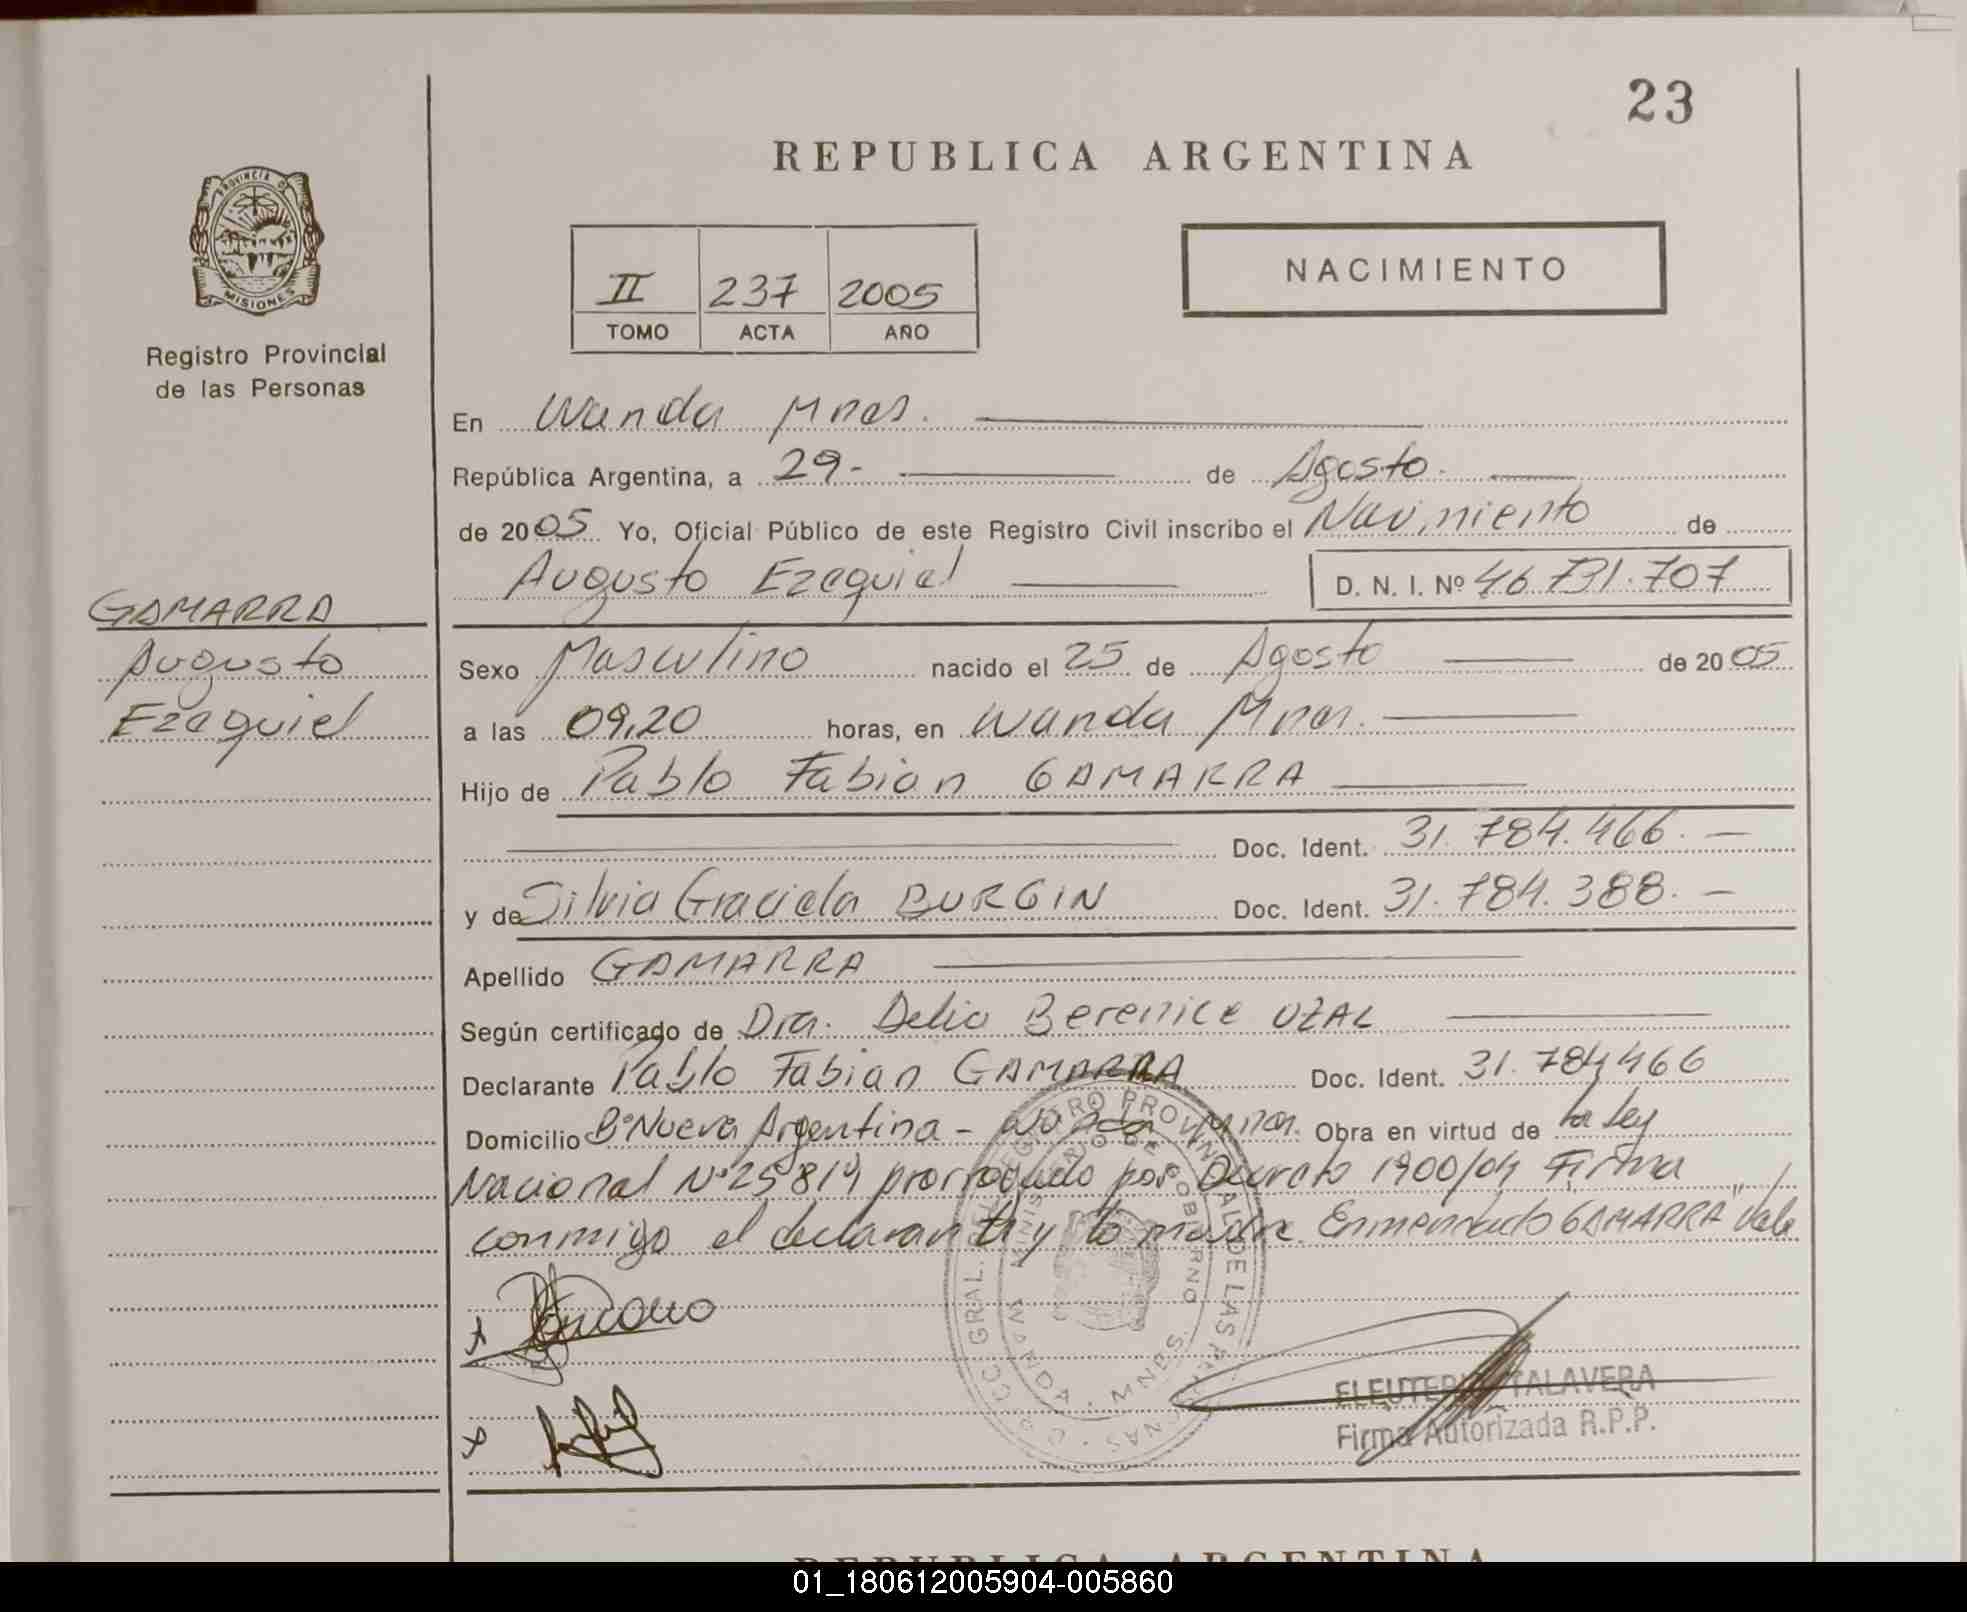 23
REPUBLICA ARGENTINA
PROVINCIA DE
MISIONES
Registro Provincial
de las Personas
II 237 2005
TOMO ACTA AÑO
NACIMIENTO
En Wanda Mnes.
República Argentina, a 29- de Agosto.
de 2005 Yo, Oficial Público de este Registro Civil inscribo el Nacimiento de
Augusto Ezequiel D. N. I. Nº 46.731.707
GAMARRA
Augusto
Ezequiel
Sexo Masculino nacido el 25 de Agosto de 2005
a las 09,20 horas, en Wanda Mnes.
Hijo de Pablo Fabian GAMARRA
Doc. Ident. 31.784.466.-
y de Silvia Graciela BURGIN Doc. Ident. 31.784.388.-
Apellido GAMARRA
Según certificado de Dra. Delia Berenice UZAL
Declarante Pablo Fabian GAMARRA Doc. Ident. 31.784466
Domicilio Bº Nueva Argentina - Wanda Mnes. Obra en virtud de la Ley
Nacional Nº 25819 prorrogado por Decreto 1900/04 Firma
conmigo el declarante y la madre. Enmendado "GAMARRA" vale
MINISTERIO DE GOBIERNO
WANDA - MNES.
ELEUTERIO TALAVERA
Firma Autorizada R.P.P.
REPUBLICA ARGENTINA
01_180612005904-005860